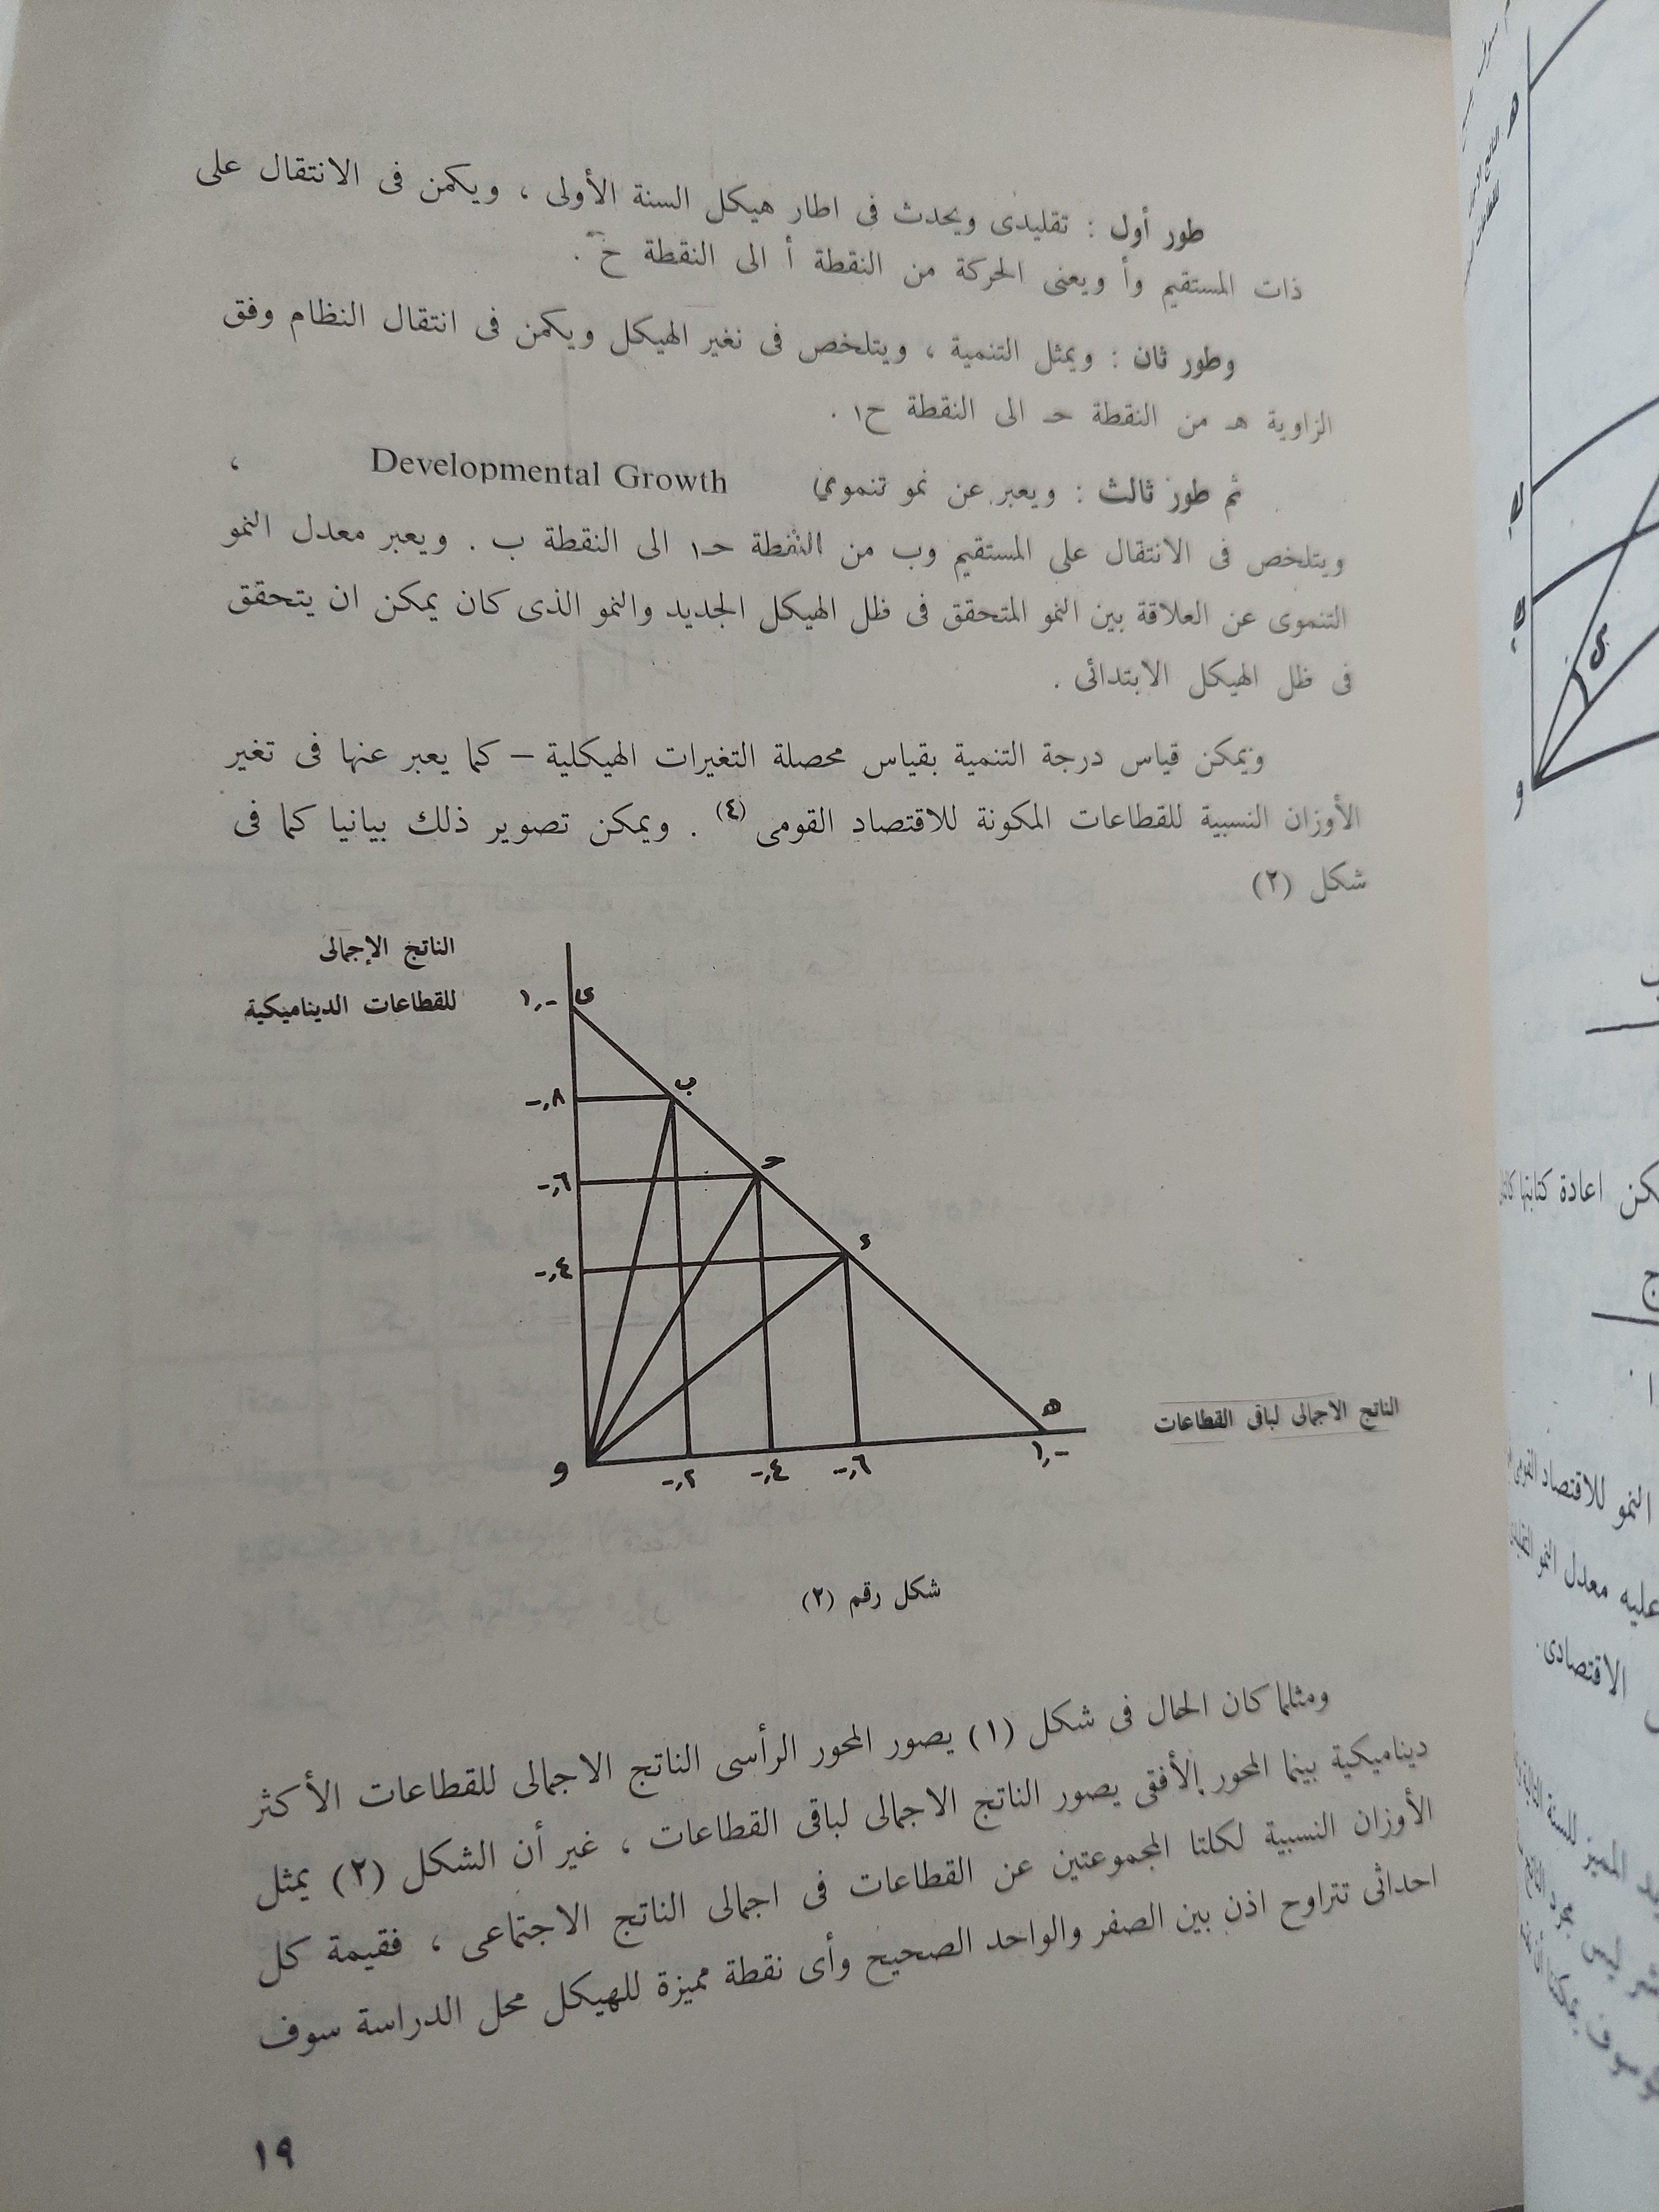 طور أول : تقليدى ويحدث فى اطار هيكل السنة الأولى ، ويكمن فى الانتقال على
ذات المستقيم وأ ويعنى الحركة من النقطة أ الى النقطة حَ .
وطور ثان : ويمثل التنمية ، ويتلخص فى نغير الهيكل ويكمن فى انتقال النظام وفق
الزاوية هـ من النقطة حـ الى النقطة ح١ .
ثم طور ثالث : ويعبر عن نمو تنموى Developmental Growth ،
ويتلخص فى الانتقال على المستقيم وب من النقطة حـ١ الى النقطة ب . ويعبر معدل النمو
التنموى عن العلاقة بين النمو المتحقق فى ظل الهيكل الجديد والنمو الذى كان يمكن ان يتحقق
فى ظل الهيكل الابتدائى .
ويمكن قياس درجة التنمية بقياس محصلة التغيرات الهيكلية – كما يعبر عنها فى تغير
الأوزان النسبية للقطاعات المكونة للاقتصاد القومى (٤) . ويمكن تصوير ذلك بيانيا كما فى
شكل (٢)
الناتج الإجمالى
للقطاعات الديناميكية
١,٠ ى
٠,٨ ب
٠,٦ حـ
٠,٤ ء
و ٠,٢ ٠,٤ ٠,٦ ١,٠ هـ
الناتج الاجمالى لباقى القطاعات
شكل رقم (٢)
ومثلما كان الحال فى شكل (١) يصور المحور الرأسى الناتج الاجمالى للقطاعات الأكثر
ديناميكية بينما المحور الأفقى يصور الناتج الاجمالى لباقى القطاعات ، غير أن الشكل (٢) يمثل
الأوزان النسبية لكلتا المجموعتين عن القطاعات فى اجمالى الناتج الاجتماعى ، فقيمة كل
احداثى تتراوح اذن بين الصفر والواحد الصحيح وأى نقطة مميزة للهيكل محل الدراسة سوف
١٩
ى
و
كن اعادة كتابتها
النمو للاقتصاد القومى
عليه معدل النمو
الاقتصادى .
المميز للسنة